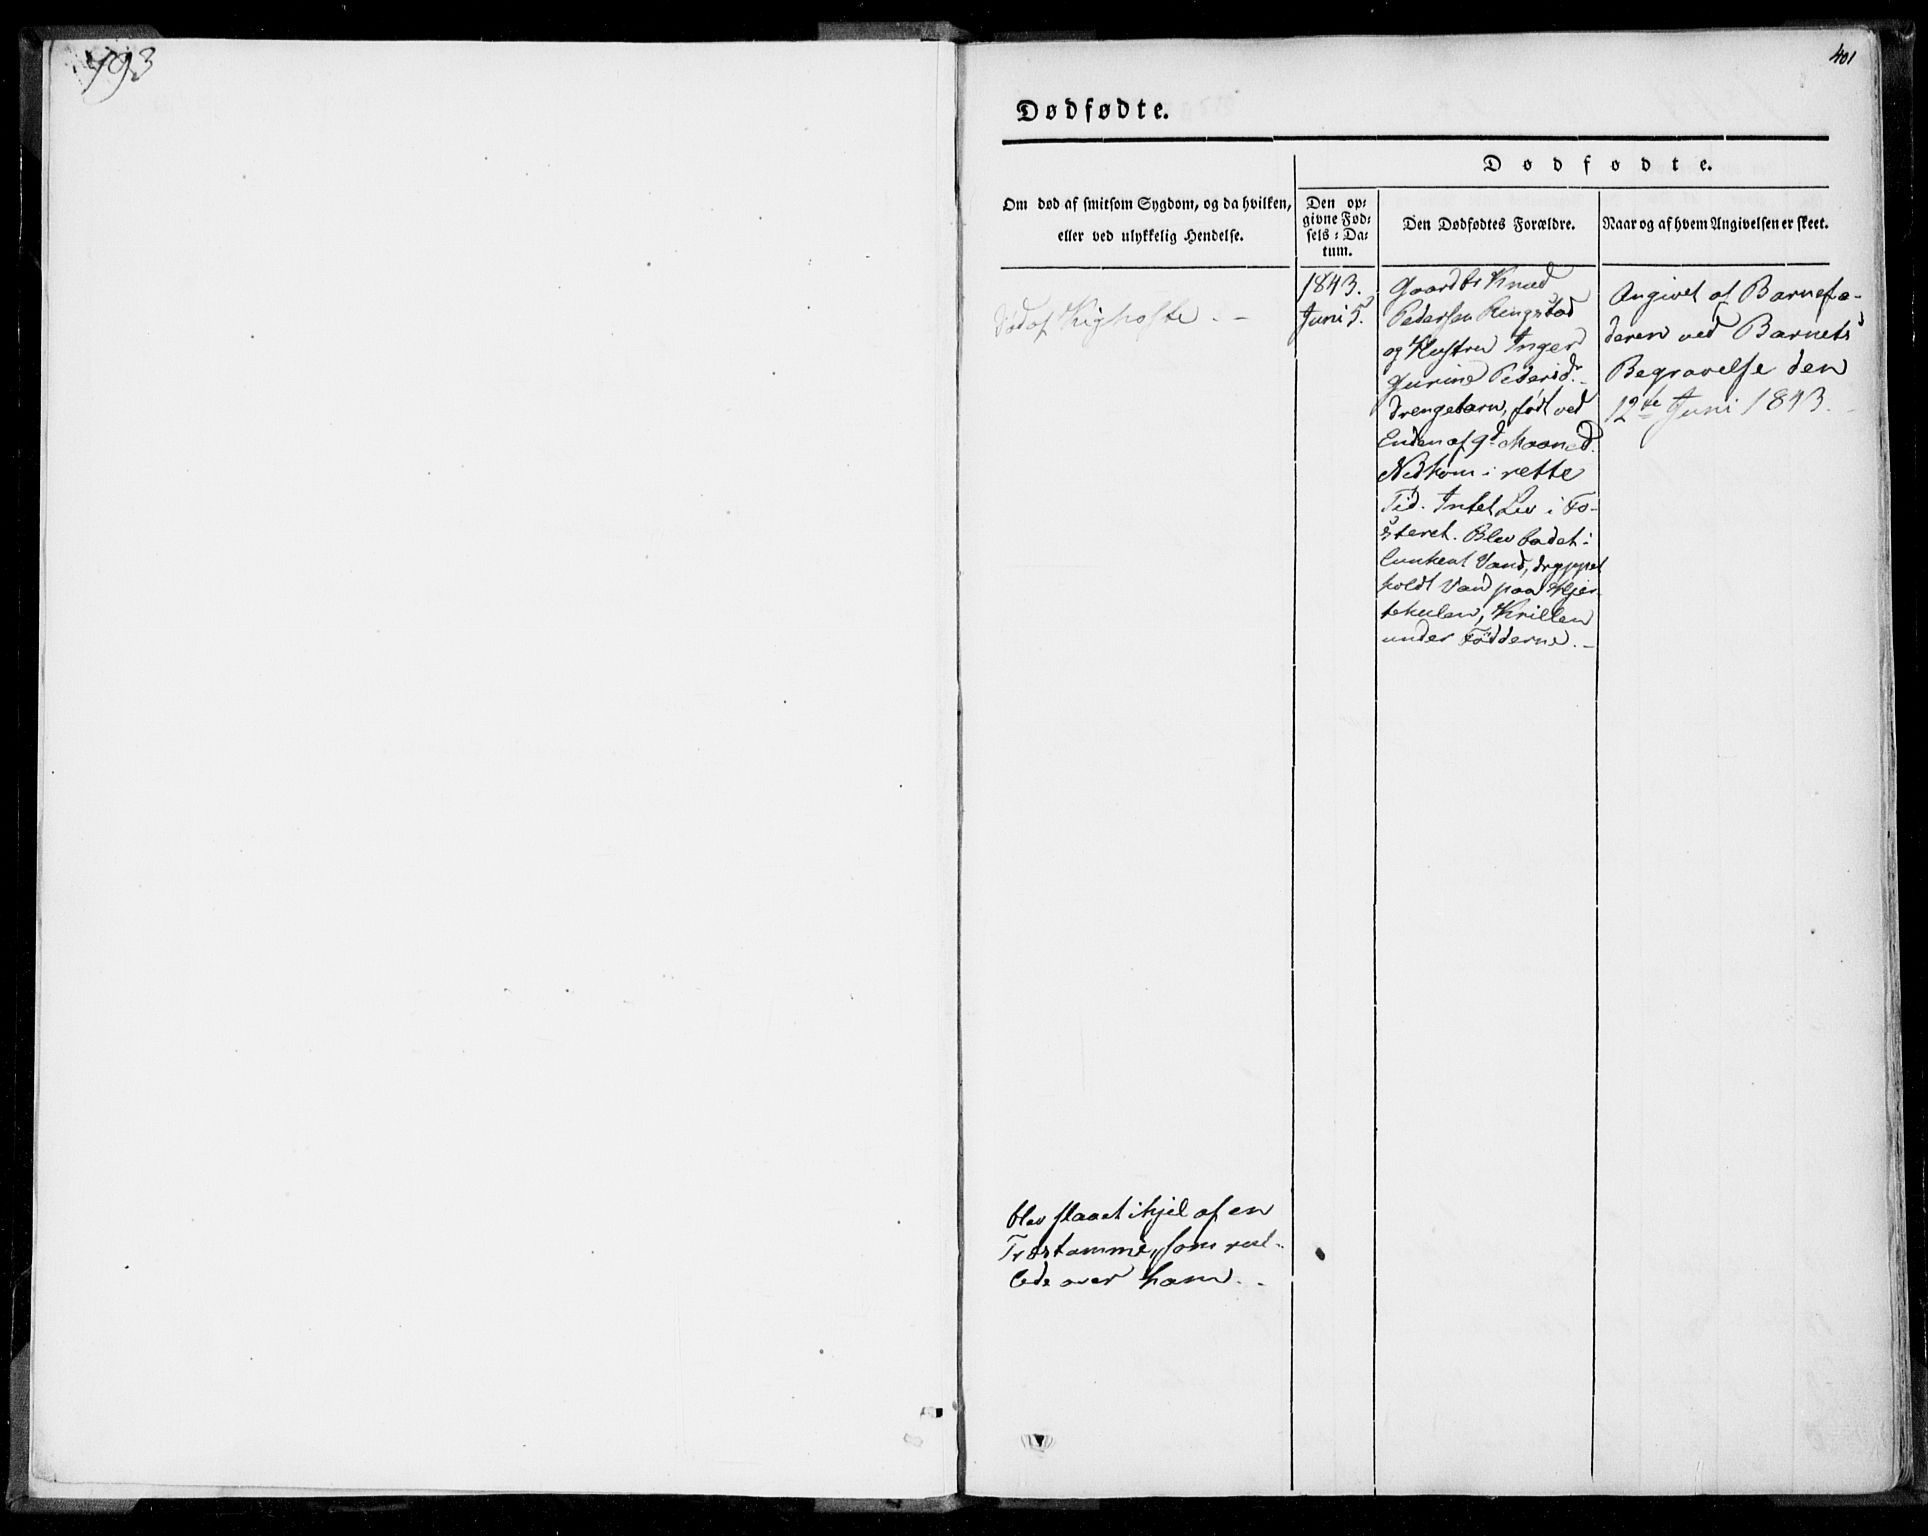 493
401
Dødfødte.
Dødfødte.
Om død af smitsom Sygdom, og da hvilken,
eller ved ulykkelig Hendelse.
Den op-
givne Fød-
sels-Da-
tum.
Den Dødfødtes Forældre.
Naar og af hvem Angivelsen er skeet.
Død af Kighoste. -
1843.
Juni 5.
Gaardbr Knud
Pedersen Ringstad
og Hustru Inger
Gurine Pedersdr.
Drengebarn, født ved
Enden af 9d Maaned.
Nedkom i rette
Tid. Intet Liv i Fo-
steret. Blev badet i
lunkent Vand, dryppet
koldt Vand paa Hjer-
tekulen,
under Fødderne. -
Angivet af Barnefa-
deren ved Barnets
Begravelse den
12te Juni 1843. -
blev slaaet ihjel af en
Træstamme, som rul-
lede over ham. -